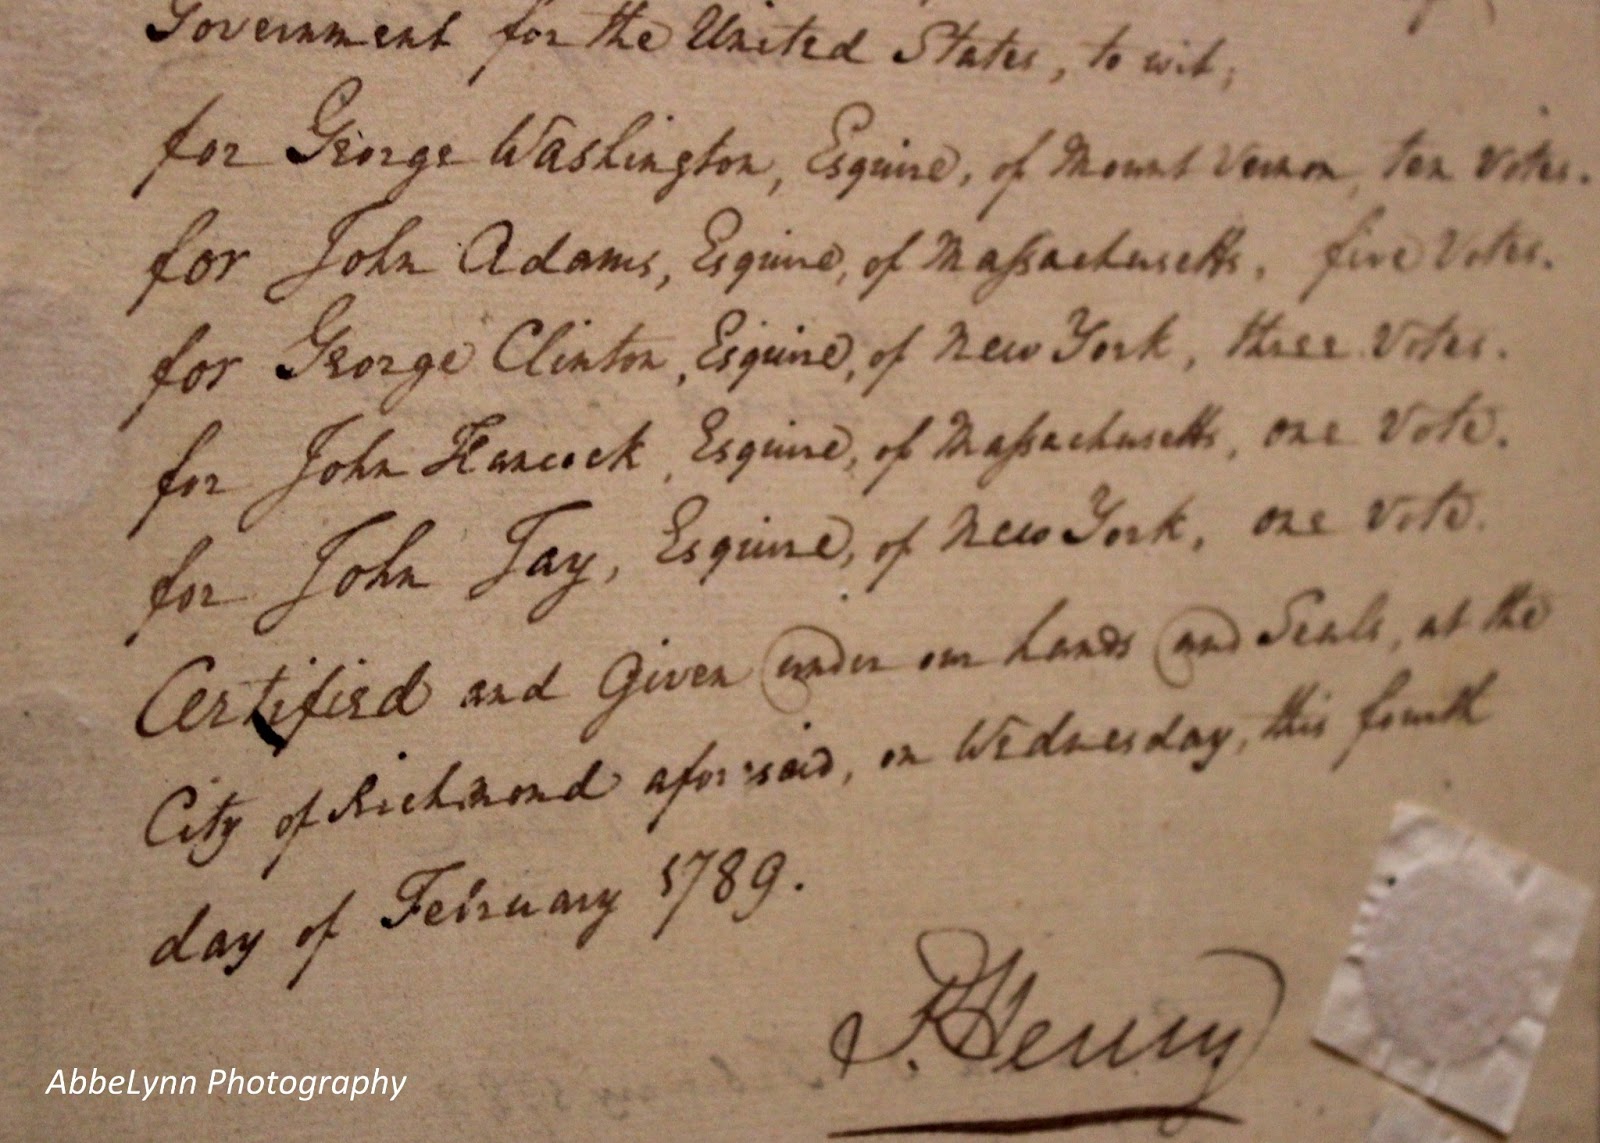 Government for the United States, to wit;
for George Washington, Esquire, of Mount Vernon, ten Votes.
for John Adams, Esquire, of Massachusetts, five Votes.
for George Clinton, Esquire, of New York, three Votes.
for John Hancock, Esquire, of Massachusetts, one Vote.
for John Jay, Esquire, of New York, one Vote.
Certified and Given under our hands and Seals, at the
City of Richmond aforesaid, on Wednesday, this fourth
day of February 1789.
P. Henry
AbbeLynn Photography